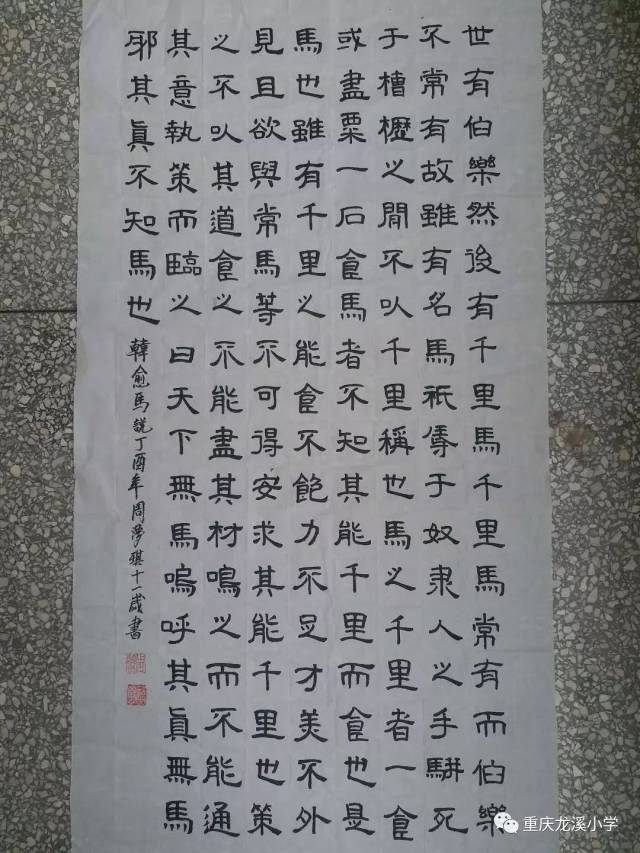 世有伯樂然後有千里馬千里馬常有而伯樂
不常有故雖有名馬祇辱于奴隶人之手駢死
于槽櫪之間不以千里稱也馬之千里者一食
或盡粟一石食馬者不知其能千里而食也是
馬也雖有千里之能食不飽力不足才美不外
見且欲與常馬等不可得安求其能千里也策
之不以其道食之不能盡其材鳴之而不能通
其意執策而臨之曰天下無馬嗚呼其眞無馬
邪其眞不知馬也
韓愈馬說丁酉年周夢琪十一歲書
重庆龙溪小学